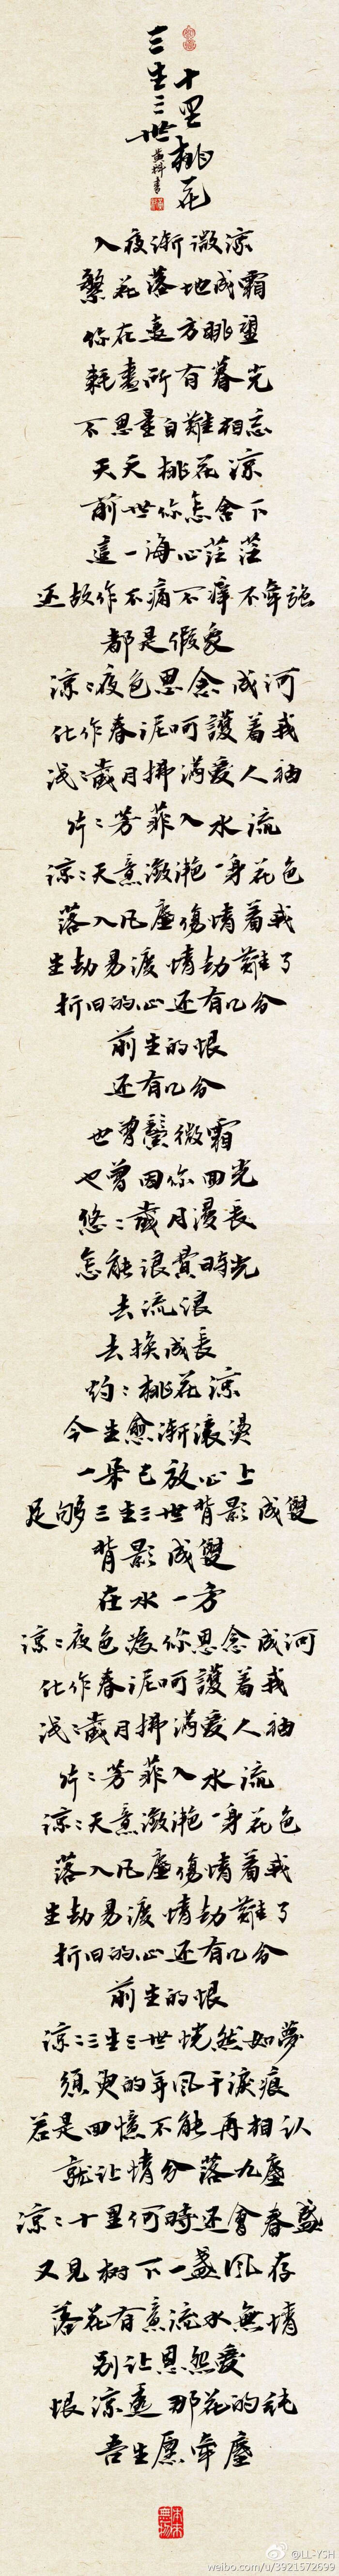 三生三世
十里桃花
黄科书
入夜渐微涼
繁花落地成霜
你在遠方眺望
耗盡所有暮光
不思量自難相忘
夭夭桃花涼
前世你怎舍下
這一海心茫茫
还故作不痛不癢不牵強
都是假象
涼涼夜色思念成河
化作春泥呵護着我
浅浅歲月拂满愛人袖
片片芳菲入水流
涼涼天意潋滟一身花色
落入凡塵傷情着我
生劫易渡情劫難了
折旧的心还有几分
前生的恨
还有几分
也曾鬓微霜
也曾因你回光
悠悠歲月漫長
怎能浪費時光
去流浪
去换成長
灼灼桃花涼
今生愈漸滚燙
一朵已放心上
足够三生三世背影成雙
背影成雙
在水一方
涼涼夜色為你思念成河
化作春泥呵護着我
浅浅歲月拂满愛人袖
片片芳菲入水流
涼涼天意潋滟一身花色
落入凡塵傷情着我
生劫易渡情劫難了
折旧的心还有几分
前生的恨
涼涼三生三世恍然如夢
須臾的年风干淚痕
若是回憶不能再相认
就让情分落九塵
涼涼十里何時还會春盛
又见树下一盏风存
落花有意流水無情
别让恩怨愛
恨涼透那花的纯
吾生愿牵塵
@LL-YSH
weibo.com/u/3921572699